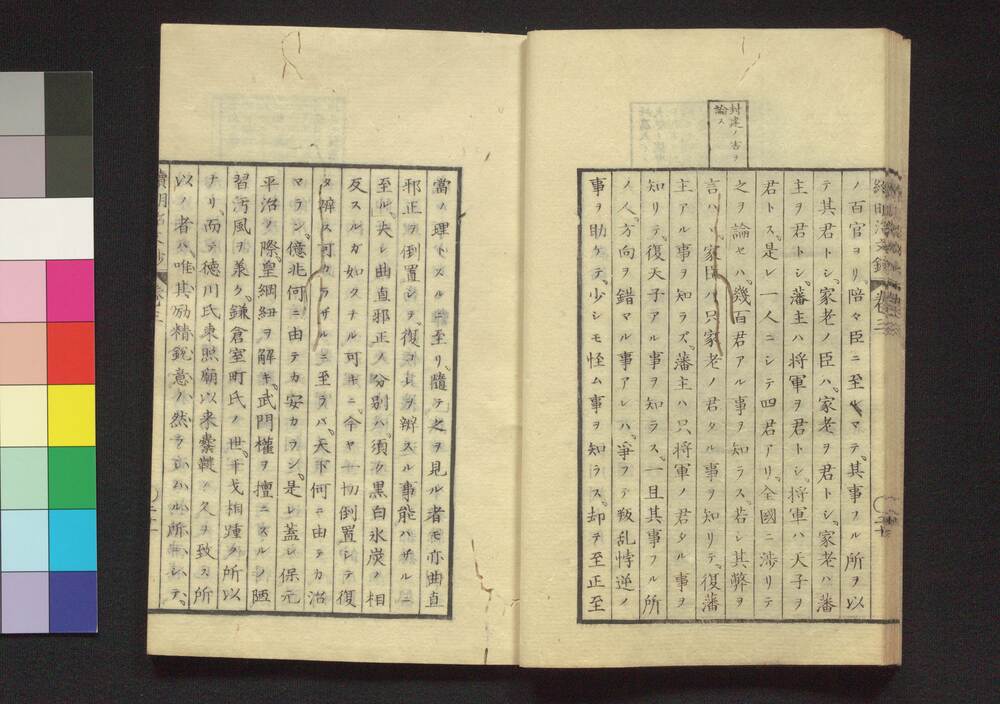 封建ノ古ヲ
論ス
ノ百官ヨリ陪々臣ニ至ルマテ其事フル所ヲ以
テ其君トシ家老ノ臣ハ家老ヲ君トシ家老ハ藩
主ヲ君トシ藩主ハ将軍ヲ君トシ将軍ハ天子ヲ
君トス是レ一人ニシテ四君アリ全國ニ渉リテ
之ヲ論セハ幾百君アル事ヲ知ラス若シ其弊ヲ
言ハヽ家臣ハ只家老ノ君タル事ヲ知リテ復藩
主アル事ヲ知ラズ藩主ハ只将軍ノ君タル事ヲ
知リテ復天子アル事ヲ知ラス一旦其事フル所
ノ人方向ヲ錯マル事アレハ爭フテ叛乱悖逆ノ
事ヲ助ケテ少シモ怪ム事ヲ知ラス却テ至正至
當ノ理トスルニ至リ隨テ之ヲ見ル者モ亦曲直
邪正ヲ倒置シテ復コレヲ辨スル事能ハザルニ
至ル夫レ曲直邪正ノ分別ハ須ク黒白氷炭ノ相
反スルガ如クナル可キニ今ヤ一切倒置シテ復
タ辨ス可カラザルニ至ラバ天下何ニ由テカ治
マラン億兆何ニ由テカ安カラン是レ蓋シ保元
平治ノ際皇綱紐ヲ解キ武門權ヲ擅ニスルノ陋
習汚風ヲ承ケ鎌倉室町氏ノ世干戈相踵ク所以
ナリ而テ徳川氏東照廟以来櫜鞬ノ久ヲ致ス所
以ノ者ハ唯其励精鋭意ノ然ラシムル所ニシテ